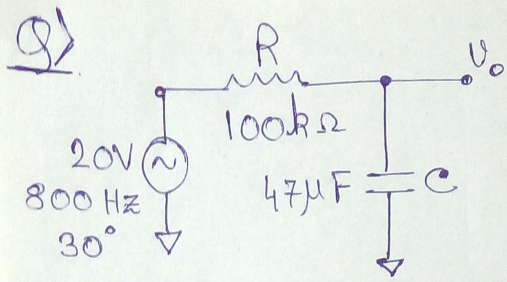 Q>
R
V₀
100kΩ
20V
800 HZ
30°
47μF
C